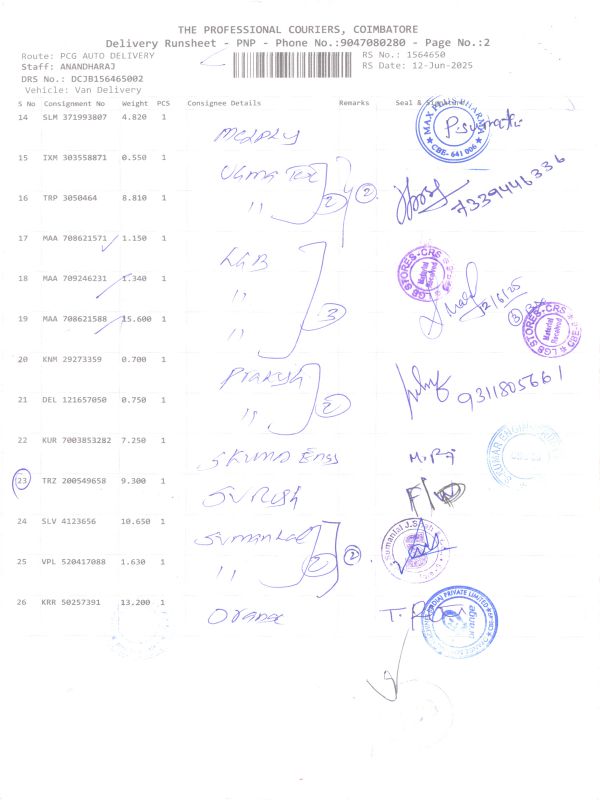 THE PROFESSIONAL COURIERS, COIMBATORE
Delivery Runsheet - PNP - Phone No.:9047080280 - Page No.:2
Route: PCG AUTO DELIVERY RS No.: 1564650
Staff: ANANDHARAJ RS Date: 12-Jun-2025
DRS No.: DCJB156465002
Vehicle: Van Delivery
S No Consignment No Weight PCS Consignee Details Remarks Seal &
14 SLM 371993807 4.820 1
15 IXM 303558871 0.550 1 ugma Tex
16 TRP 3050464 8.810 1 " 2 2 7339446336
17 MAA 708621571 1.150 1 LGB
18 MAA 709246231 1.340 1 " 12/6/25
19 MAA 708621588 15.600 1 " 3 3
LGB STORES-CRS
Material Received
LGB STORES-CRS
Material Received
CBE
20 KNM 29273359 0.700 1 Prakash
21 DEL 121657050 0.750 1 " 2 9311805661
22 KUR 7003853282 7.250 1 SKUMA Engs
23 TRZ 200549658 9.300 1 SURESH
24 SLV 4123656 10.650 1 Sumanlal
25 VPL 520417088 1.630 1 " 2 2
Sumanlal J.Shah
26 KRR 50257391 13.200 1 Orange
CBE- 641 006
PRIVATE LIMITED
orange